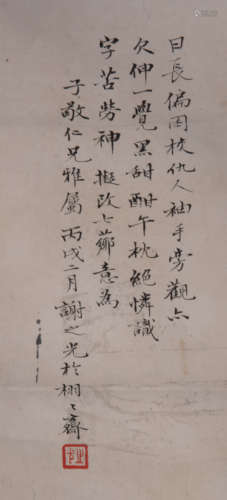 日長偏困校仇人袖手旁觀亦
欠伸一覺黑甜酣午枕絕憐識
字苦勞神擬改七薌意為
子敬仁兄雅屬丙戌二月謝之光於栩栩齋